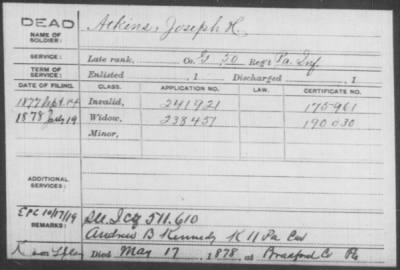 DEAD
NAME OF SOLDIER:
Atkins, Joseph H.
SERVICE:
Late rank, Co. G. 50 Reg't Pa. Inf
TERM OF SERVICE:
Enlisted , 1 Discharged , 1
DATE OF FILING. CLASS. APPLICATION NO. LAW. CERTIFICATE NO.
1877 Sept. 14 Invalid, 241921 175961
1878 July 19 Widow, 238451 190030
Minor,
ADDITIONAL SERVICES:
REMARKS:
EPC 10/17/19
511.610
Andrew B Kennedy K 11 Pa Cav
Died May 17, 1878, at Bradford Co Pa